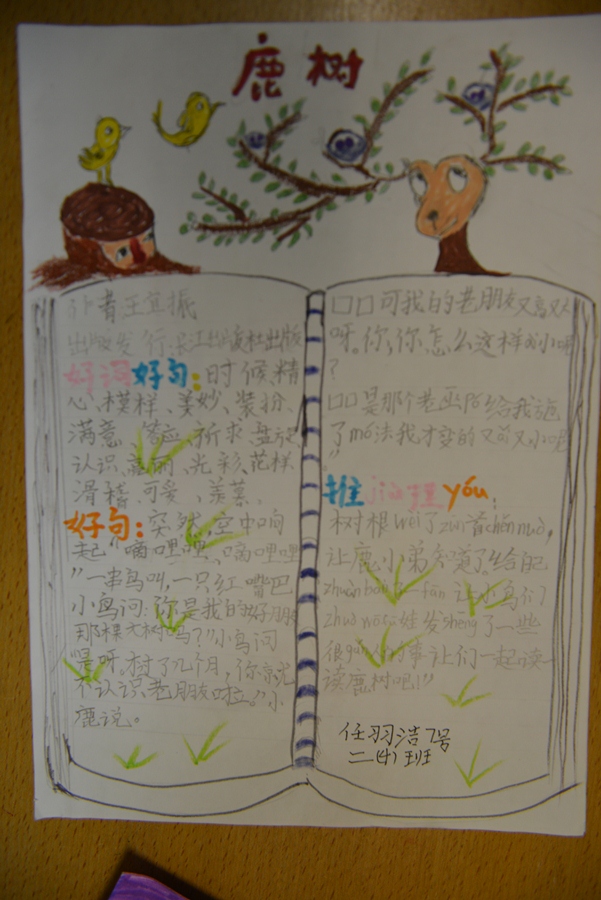 鹿树
作者王宜振
出版发行:长江出版社出版
好词好句:时候、精
心、模样、美妙、装扮、
满意、答应、祈求、盘旋、
认识、亮丽、光彩、花样、
滑稽、可爱、羡慕。
好句:突然,空中响
起“嘀哩哩、嘀哩哩
”一串鸟叫,一只红嘴巴
小鸟问:你是我的好朋友
那棵大树吗?”小鸟问
“是呀。村了几个月,你就
不认识老朋友啦。”小
鹿说。
口口可我的老朋友又高又大
呀。你,你怎么这样的小呢
?
口口是那个老巫陌给我施
了mó法我才变的又可又小呢
”
推jiàn理yóu:
树根wèi了zūn首chénnuò,
让鹿小弟知道了。给自己
zhuāng bàn fān 让小鸟们
zhù wō 发shēng了一些
很gǎn的事让们一起读一
读鹿树吧!”
任羽洁7号
二(4)班